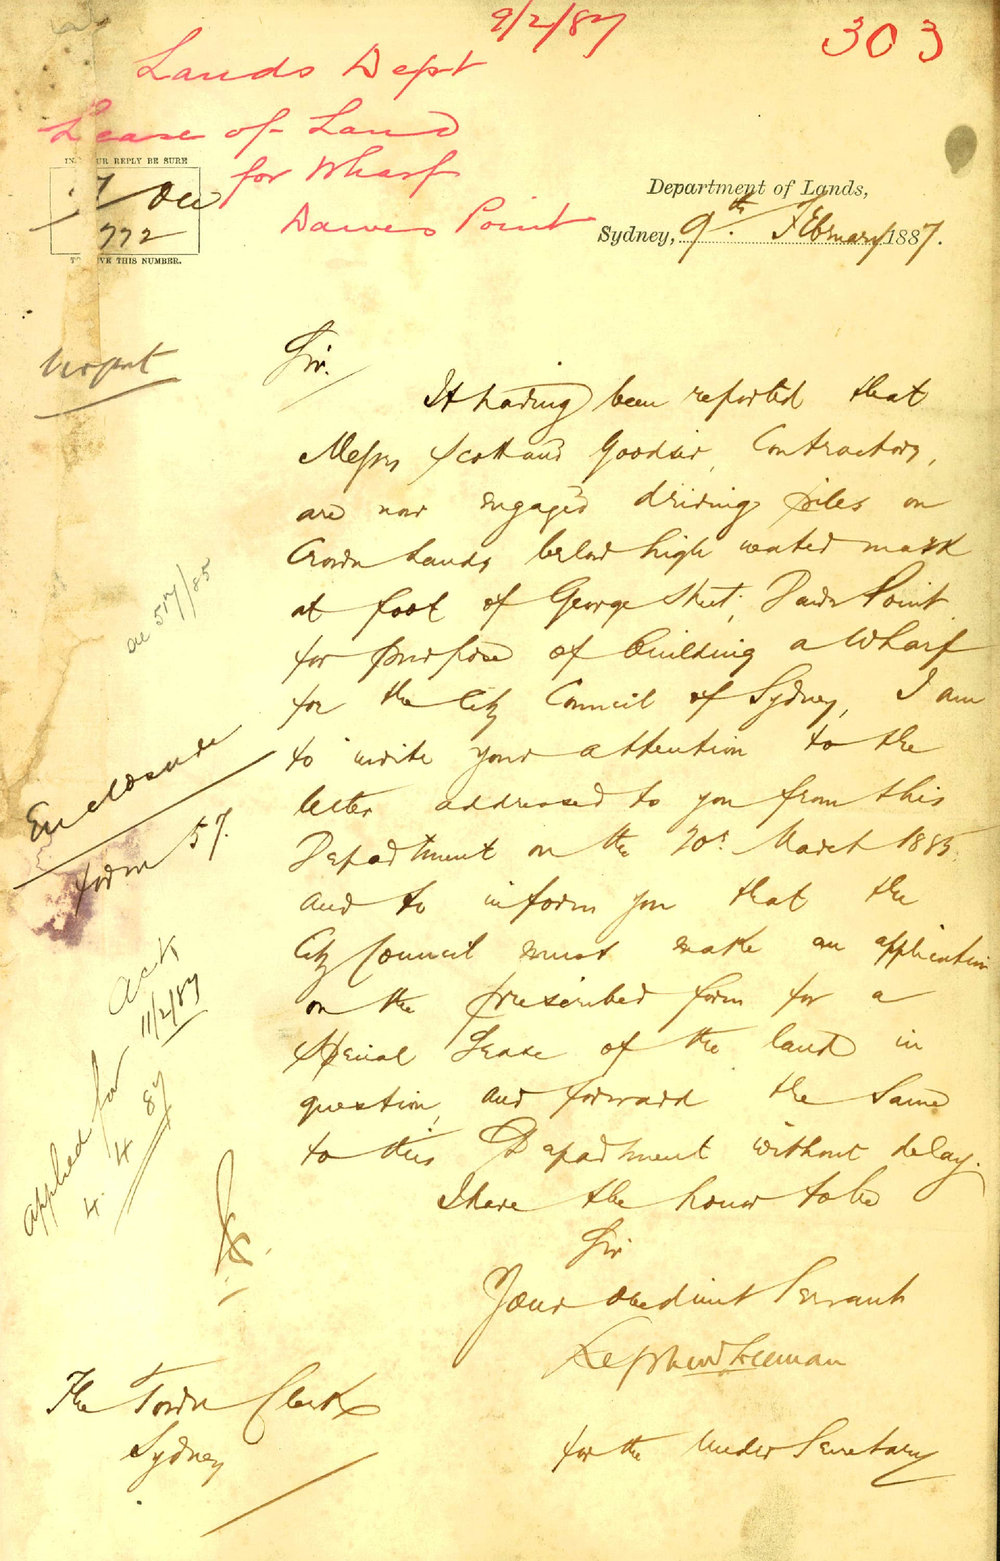 9/2/87
303
Lands Dept
Lease of Land
for Wharf
Dawes Point
IN YOUR REPLY BE SURE
772
TO GIVE THIS NUMBER.
Department of Lands,
Sydney, 9th. February 1887.
Urgent
Sir.
It having been reported that
Messrs Scott and Goodsir, Contractors,
are now engaged driving piles on
Crown Lands below high water mark
at foot of George Street, Dawes Point
for purpose of building a Wharf
for the City Council of Sydney, I am
to invite your attention to the
letter addressed to you from this
Department on the 20th March 1885.
and to inform you that the
City Council must make an application
on the prescribed form for a
Special Lease of the land in
question, and forward the same
to this Department without delay.
I have the honor to be
Sir
Your obedient Servant
Freeman
for the Under Secretary
The Town Clerk
Sydney
517/85
Enclosure
form 57.
Ack
11/2/87
applied for
4. 4 87